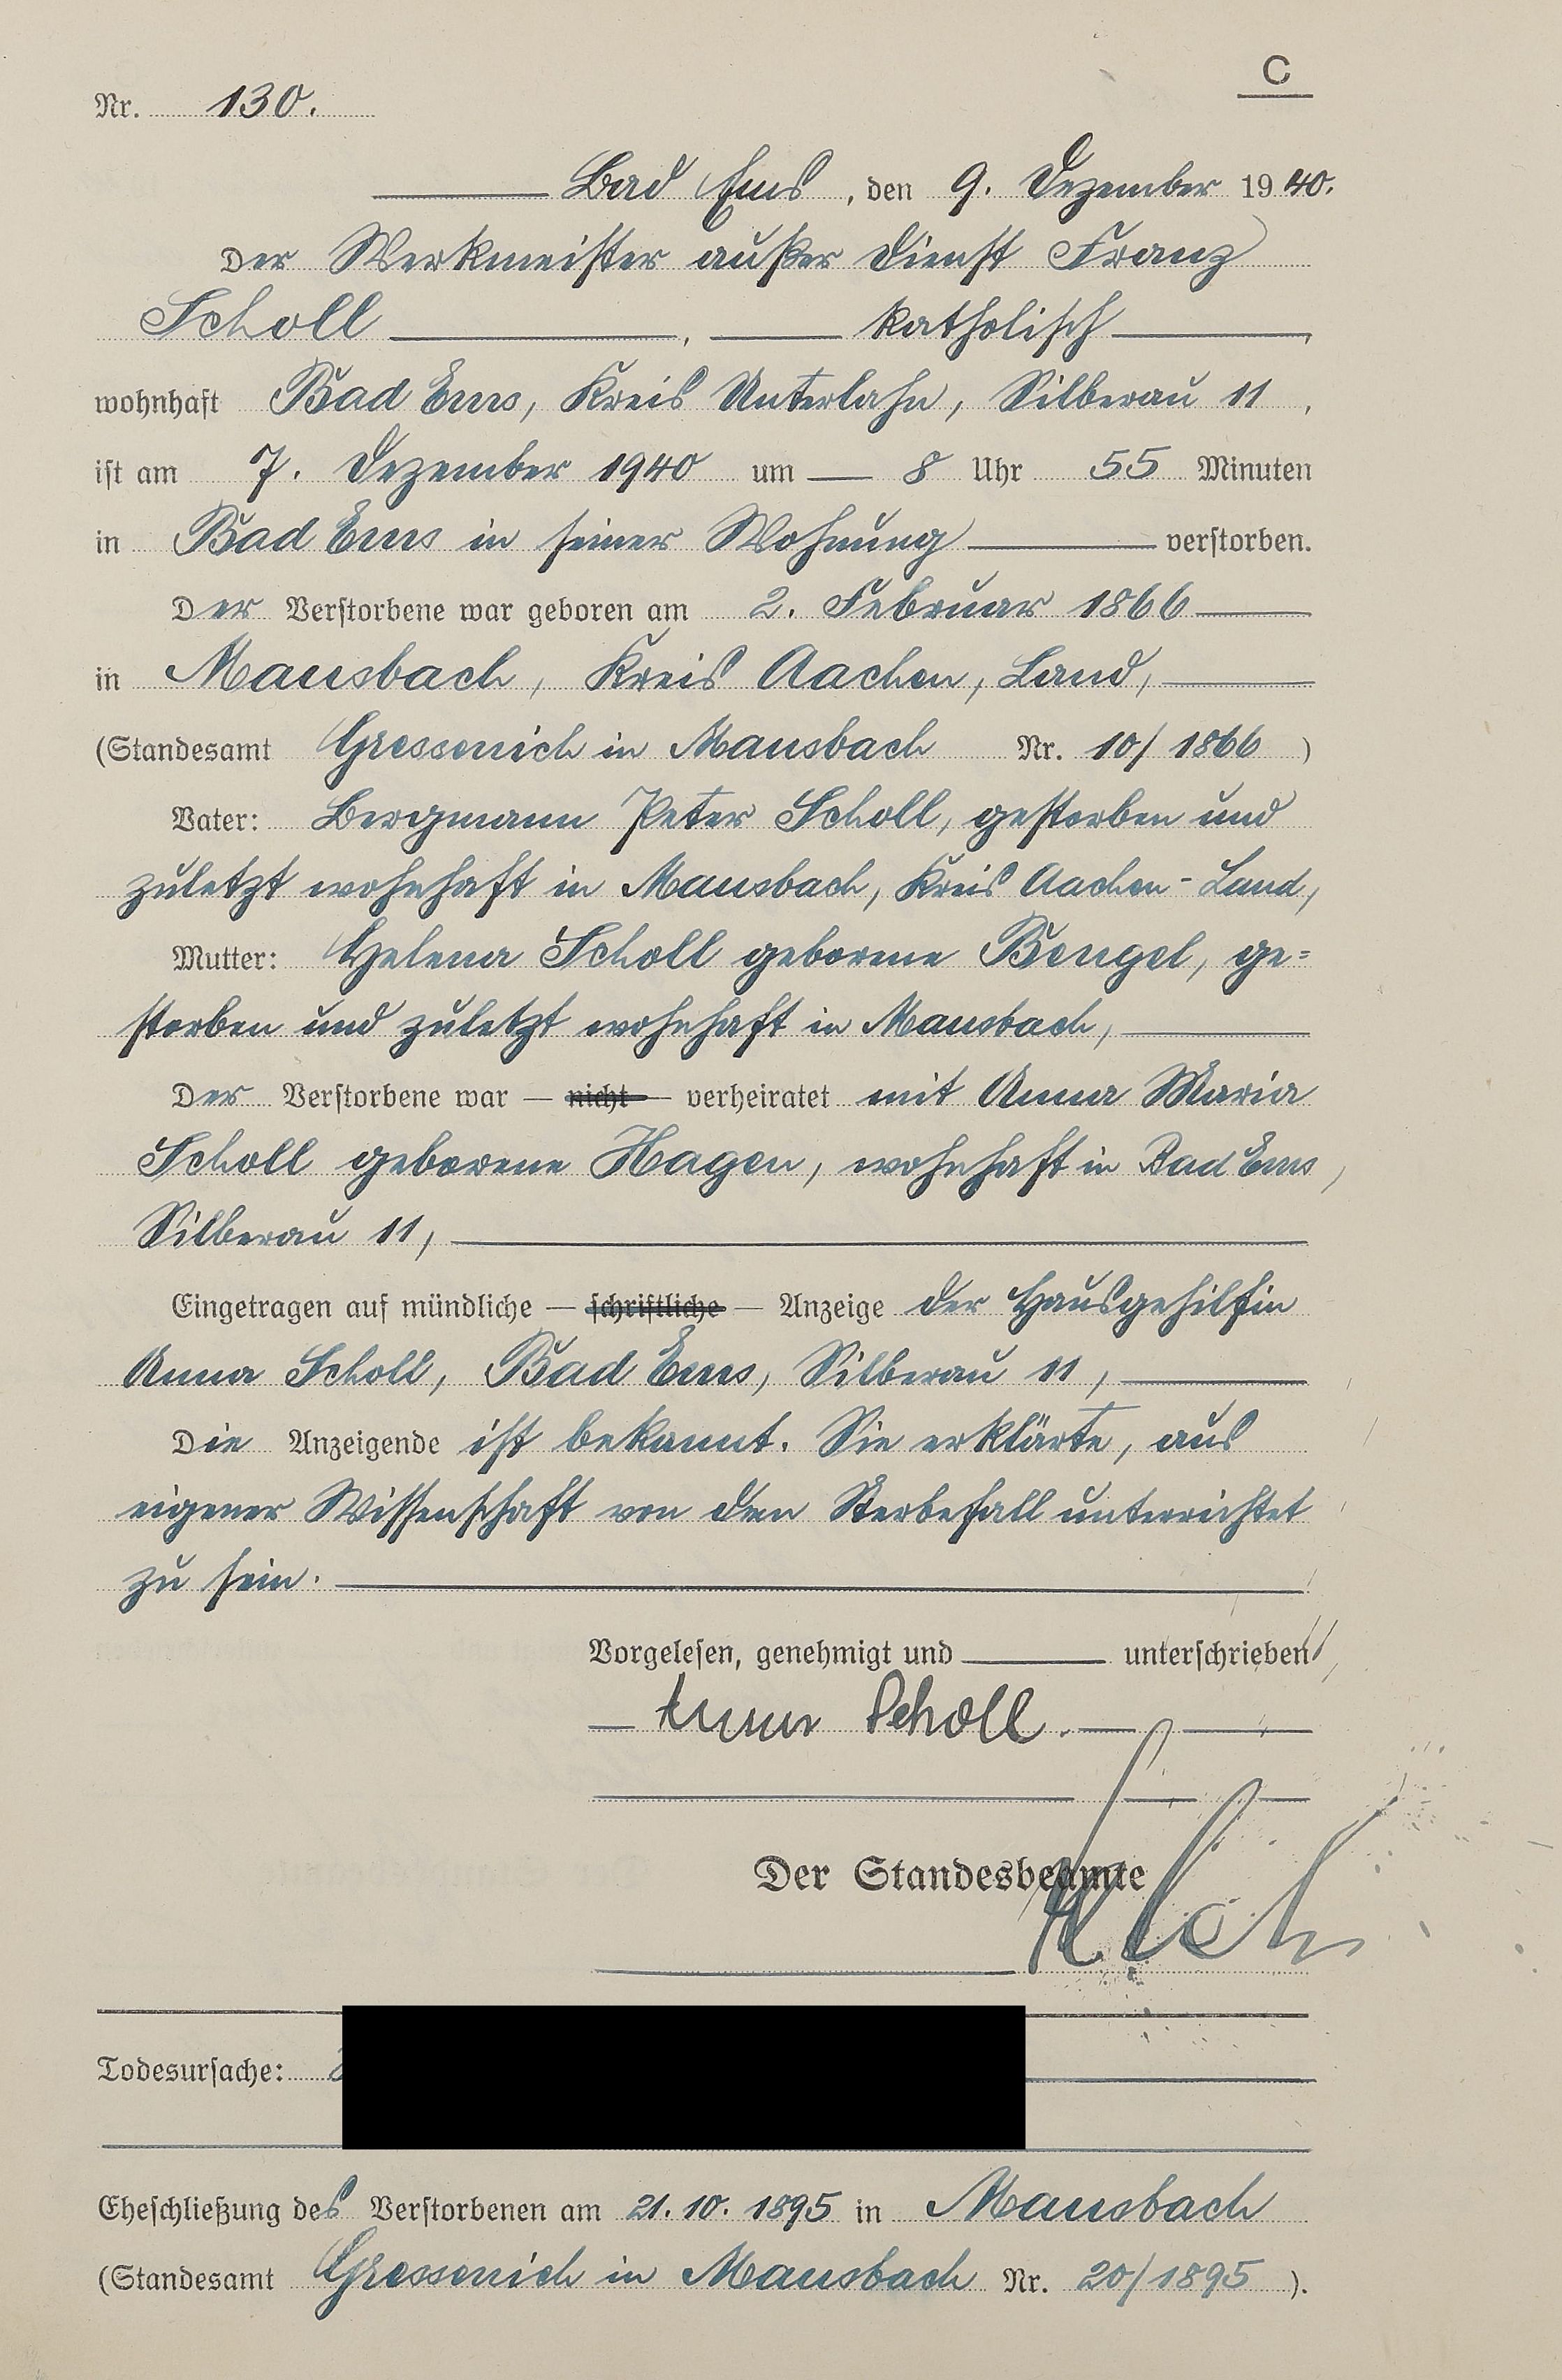 C
Nr. 130.
Bad Ems, den 9. Dezember 1940.
Der Werkmeister außer Dienst Franz
Scholl, katholisch,
wohnhaft Bad Ems, Kreis Unterlahn, Silberau 11,
ist am 7. Dezember 1940 um 8 Uhr 55 Minuten
in Bad Ems in seiner Wohnung verstorben.
Der Verstorbene war geboren am 2. Februar 1866
in Mausbach, Kreis Aachen, Land,
(Standesamt Gressenich in Mausbach Nr. 10/1866)
Vater: Bergmann Peter Scholl, gestorben und
zuletzt wohnhaft in Mausbach, Kreis Aachen-Land,
Mutter: Helena Scholl geborene Bengel, ge=
storben und zuletzt wohnhaft in Mausbach,
Der Verstorbene war — nicht — verheiratet mit Anna Maria
Scholl geborene Hagen, wohnhaft in Bad Ems,
Silberau 11,
Eingetragen auf mündliche — schriftliche — Anzeige der Hausgehilfin
Anna Scholl, Bad Ems, Silberau 11,
Die Anzeigende ist bekannt. Sie erklärte, aus
eigener Wissenschaft von dem Sterbefall unterrichtet
zu sein.
Vorgelesen, genehmigt und unterschrieben
Anna Scholl.
Der Standesbeamte
Todesursache:
Eheschließung des Verstorbenen am 21.10.1895 in Mausbach
(Standesamt Gressenich in Mausbach Nr. 20/1895).